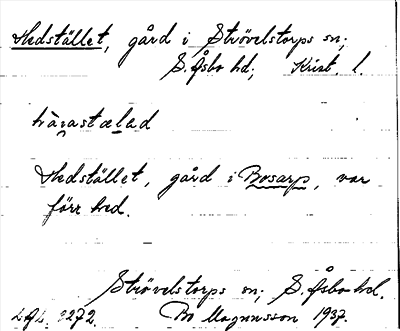 Hedstället, gård i Strövelstorps sn;
S. Åsbo hd; Krist. l.
hèᶏastælad
Hedstället, gård i Bosarp, var
förr hed.
Strövelstorps sn; S. Åsbo hd.
Bo Magnusson 1937.